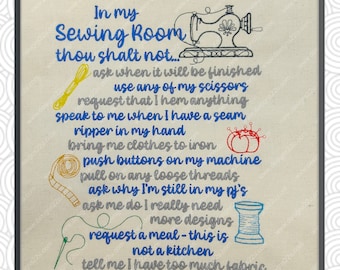 In my
Sewing Room
thou shalt not...
ask when it will be finished
use any of my scissors
request that I hem anything
speak to me when I have a seam
ripper in my hand
bring me clothes to iron
push buttons on my machine
pull on any loose threads
ask why I'm still in my pj's
ask me do I really need
more designs
request a meal - this is
not a kitchen
tell me I have too much fabric